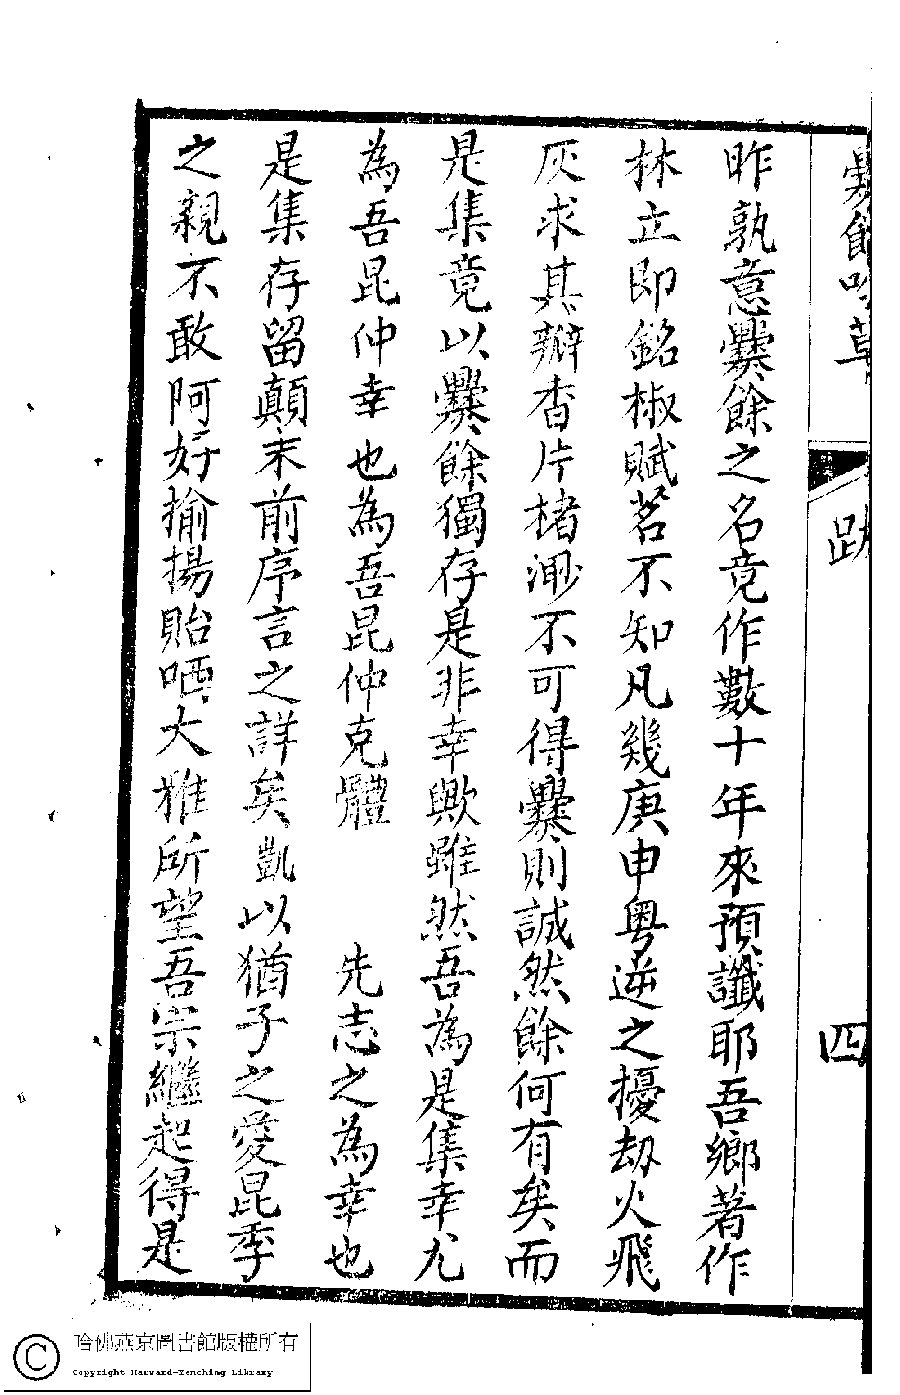 爨餘吟草
跋
四
昨孰意爨餘之名竟作數十年來預讖耶吾鄉著作
林立即銘椒賦茗不知凡幾庚申粤逆之擾劫火飛
灰求其瓣香片楮渺不可得爨則誠然餘何有矣而
是集竟以爨餘獨存是非幸歟雖然吾為是集幸尤
為吾昆仲幸也為吾昆仲克體　　先志之為幸也
是集存留顛末前序言之詳矣凱以猶子之愛昆季
之親不敢阿好揄揚貽哂大雅所望吾宗繼起得是
哈佛燕京圖書館版權所有
Copyright Harvard-Yenching Library